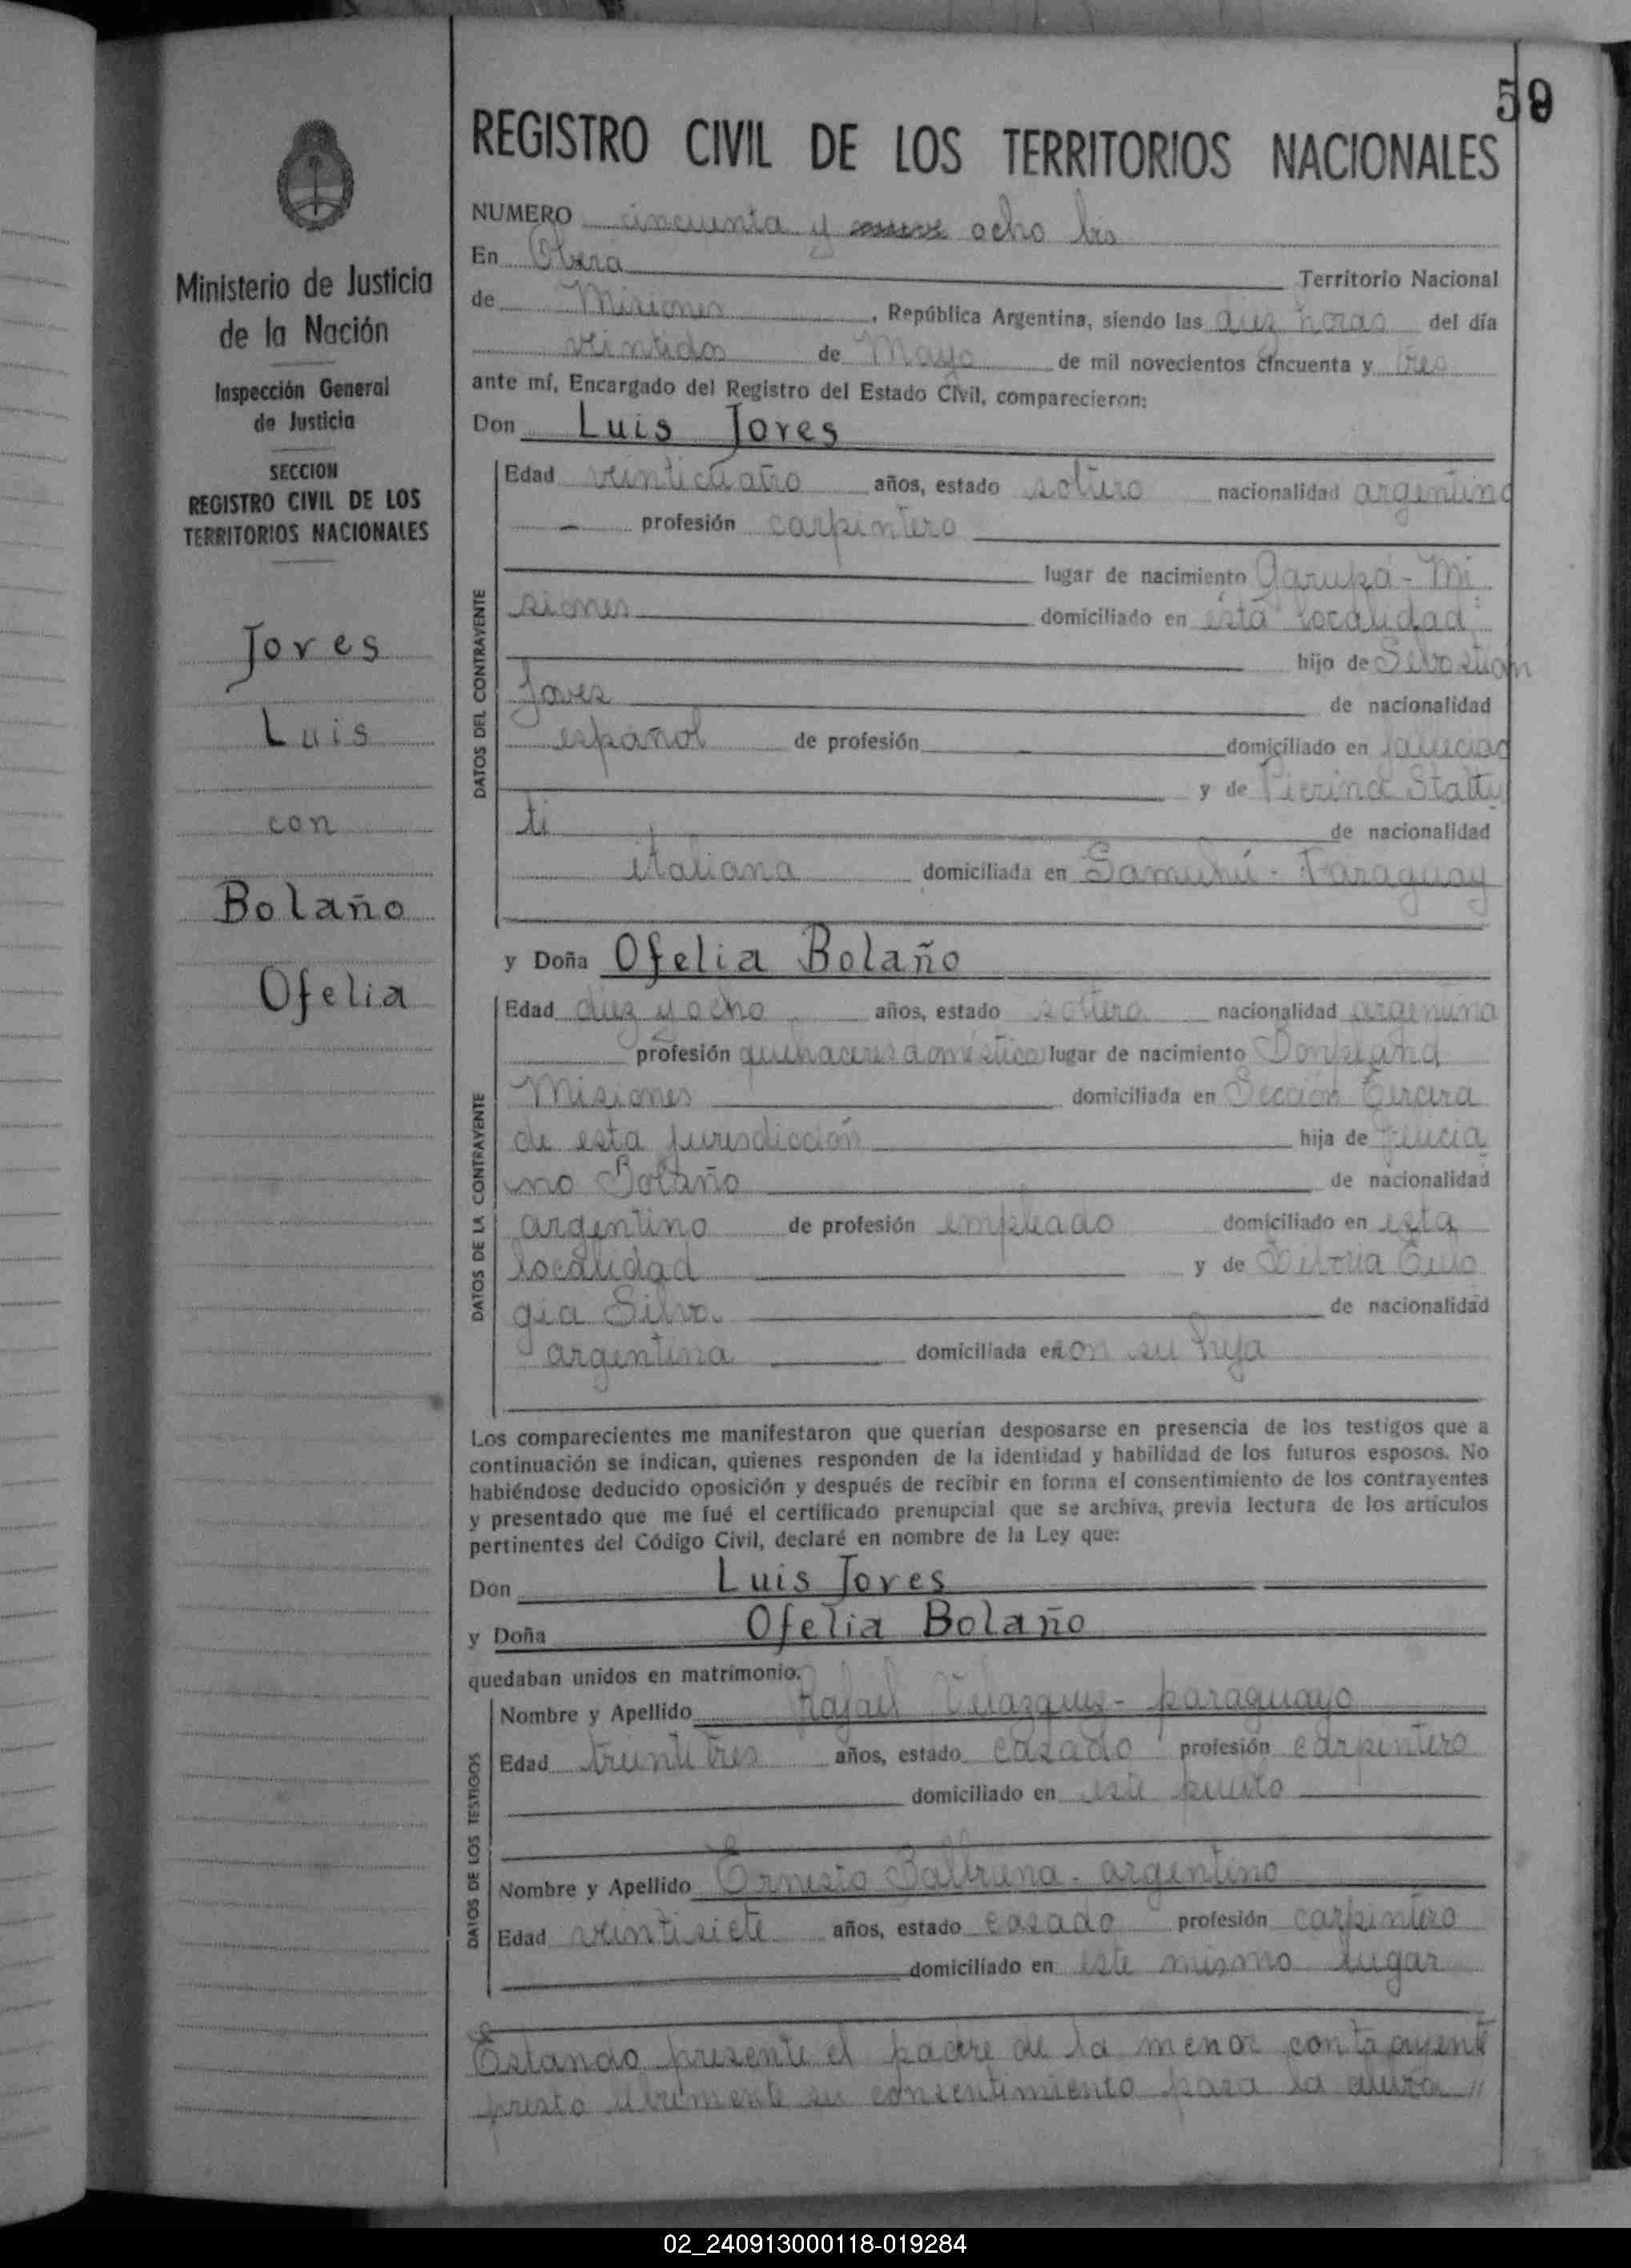 59
Ministerio de Justicia
de la Nación
Inspección General
de Justicia
SECCION
REGISTRO CIVIL DE LOS
TERRITORIOS NACIONALES
Jores
Luis
con
Bolaño
Ofelia
REGISTRO CIVIL DE LOS TERRITORIOS NACIONALES
NUMERO cincuenta y nueve ocho bis
En Oberá Territorio Nacional
de Misiones, República Argentina, siendo las diez horas del día
veintidos de Mayo de mil novecientos cincuenta y tres
ante mí, Encargado del Registro del Estado Civil, comparecieron:
Don Luis Jores
DATOS DEL CONTRAYENTE
Edad veinticuatro años, estado soltero nacionalidad argentino
- profesión carpintero
lugar de nacimiento Garupá - Mi
siones domiciliado en ésta localidad
hijo de Sebastian
Jores de nacionalidad
español de profesión domiciliado en fallecido
y de Pierina
ti de nacionalidad
italiana domiciliada en Samuhú - Paraguay
y Doña Ofelia Bolaño
DATOS DE LA CONTRAYENTE
Edad diez y ocho años, estado soltera nacionalidad argentina
profesión quehaceres doméstico lugar de nacimiento Bonpland,
Misiones domiciliada en Sección Tercera
de esta jurisdicción hija de Felicia
no Bolaño de nacionalidad
argentino de profesión empleado domiciliado en esta
localidad y de Eulo
gia Silva de nacionalidad
argentina domiciliada en con su hija
Los comparecientes me manifestaron que querían desposarse en presencia de los testigos que a
continuación se indican, quienes responden de la identidad y habilidad de los futuros esposos. No
habiéndose deducido oposición y después de recibir en forma el consentimiento de los contrayentes
y presentado que me fué el certificado prenupcial que se archiva, previa lectura de los artículos
pertinentes del Código Civil, declaré en nombre de la Ley que:
Don Luis Jores
y Doña Ofelia Bolaño
quedaban unidos en matrimonio.
DATOS DE LOS TESTIGOS
Nombre y Apellido Rafael Velazquez - paraguayo
Edad treinti tres años, estado casado profesión carpintero
domiciliado en este pueblo
Nombre y Apellido Ernesto - argentino
Edad veintisiete años, estado casado profesión carpintero
domiciliado en este mismo lugar
Estando presente el padre de la menor contrayente
presta libremente su consentimiento para la
02_240913000118-019284